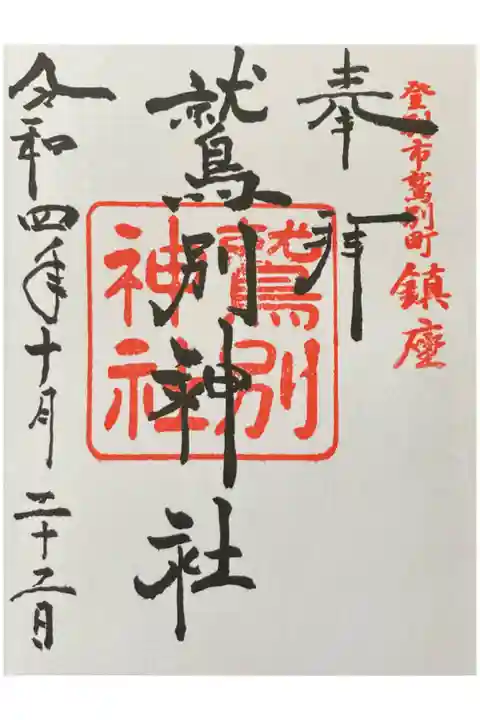 登別市鷲別町 鎮座
奉拝
鷲別神社
鷲別
神社
令和四年十月二十二日